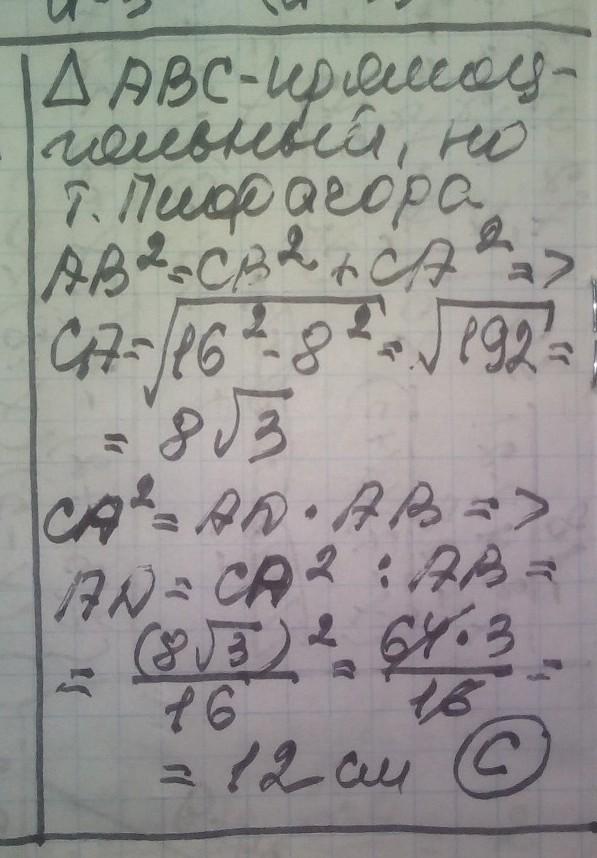 △ ABC - прямоуг-
гольный, по
т. Пифагора
AB² = CB² + CA² =>
CA = √(16² - 8²) = √192 =
= 8√3
CA² = AD · AB =>
AD = CA² : AB =
= (8√3)²/16 = 64·3/16 =
= 12 см (C)